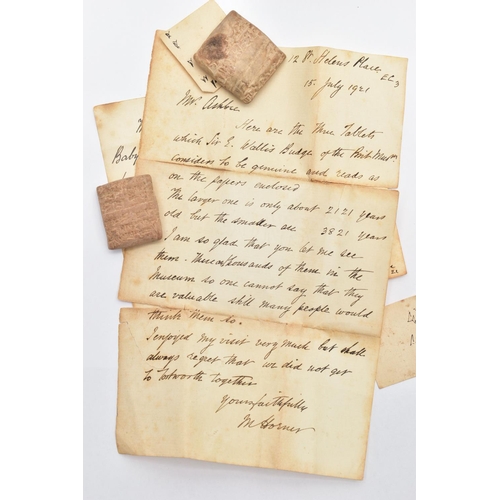 12 St. Helens Place
EC3
15 July 1921
Mr. Ashbie
Here are the three Tablets
which Sir E. Wallis Budge of the Brit. Musm
considers to be genuine and reads as
on the papers enclosed
The larger one is only about 2121 years
old but the smaller are 3821 years
I am so glad that you let me see
them - there are thousands of them in the
Museum so one cannot say that they
are valuable still many people would
think them so.
I enjoyed my visit very much but shall
always regret that we did not get
to together
Yours faithfully
M Horner
Baby
21